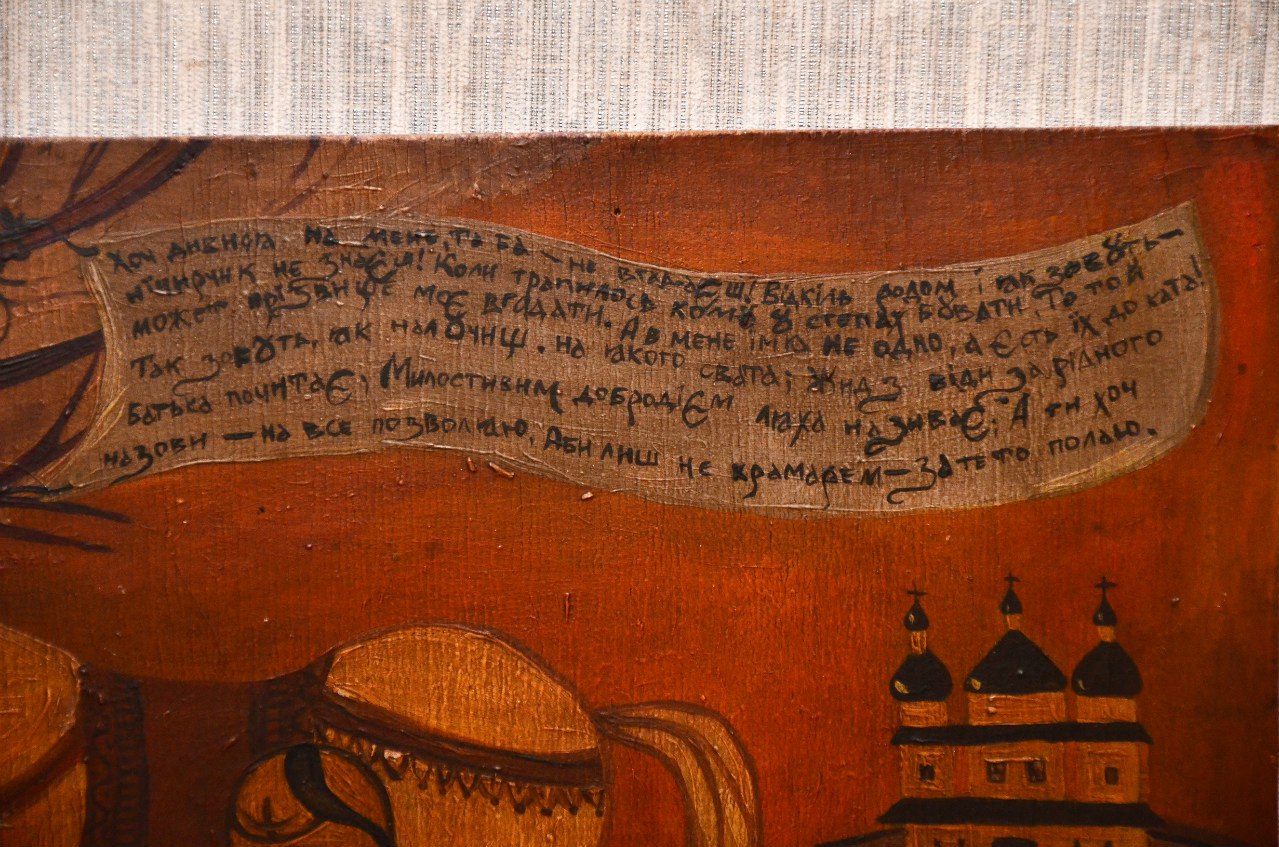 Хоч дивися на мене, та ба – не втораєш! Відкіль родом і як зовуть –
нічирчик не знаєш! Коли трапилось кому у степах бовати, То той
может прізвище моє вгодати. А в мене імя не одно, а єсть їх до ката!
Так зовуть, як налучиш. на якого свата; Жид з біди за рідного
батька почитає; Милостивим добродієм ляха називає; А ти хоч
назови – на все позволяю, Аби лиш не крамарем – за тето полаю.